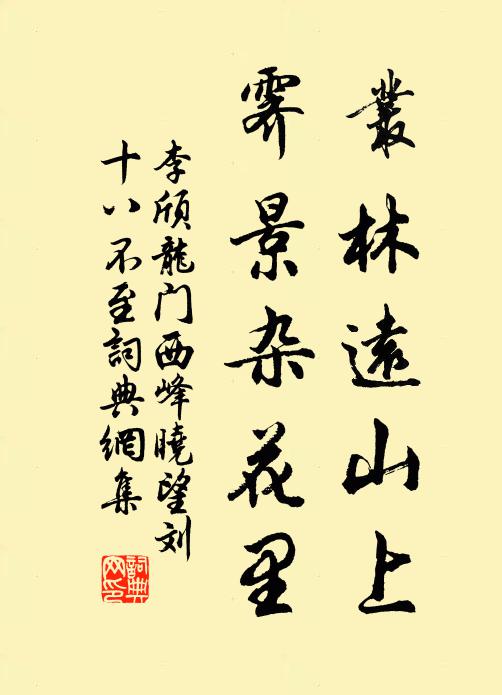 叢林遠山上
霽景杂花里
李頎龍门西峰曉望刘
十八不至詞典網集
詞典
网印